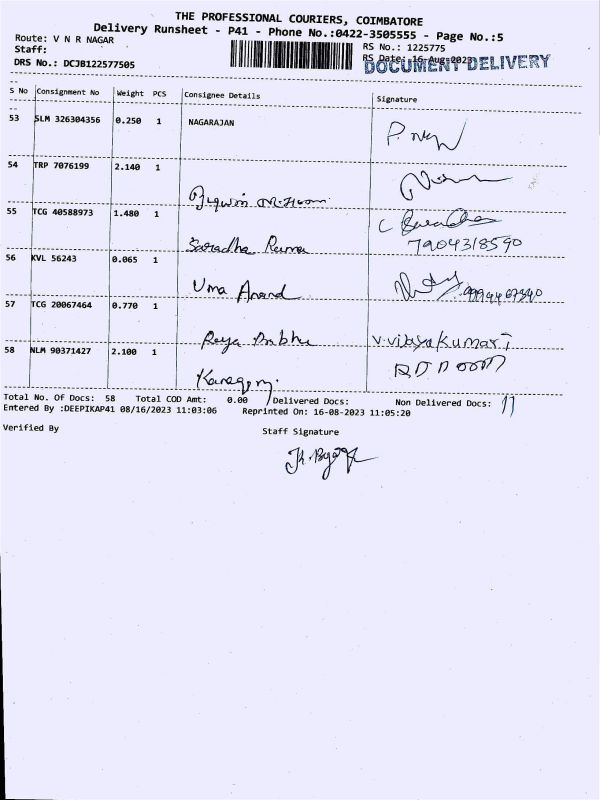 THE PROFESSIONAL COURIERS, COIMBATORE
Delivery Runsheet - P41 - Phone No.:0422-3505555 - Page No.:5
Route: V N R NAGAR
RS No.: 1225775
Staff:
RS Date: 16-Aug-2023
DOCUMENT DELIVERY
DRS No.: DCJB122577505
S No Consignment No Weight PCS Consignee Details Signature
53 SLM 326304356 0.250 1 NAGARAJAN
54 TRP 7076199 2.140 1
55 TCG 40588973 1.480 1
Saradha 7904318590
56 KVL 56243 0.065 1
Uma Anand
57 TCG 20067464 0.770 1
V.Vijayakumari
58 NLM 90371427 2.100 1
Total No. Of Docs: 58 Total COD Amt: 0.00 Delivered Docs: Non Delivered Docs: 11
Entered By :DEEPIKAP41 08/16/2023 11:03:06 Reprinted On: 16-08-2023 11:05:20
Verified By Staff Signature